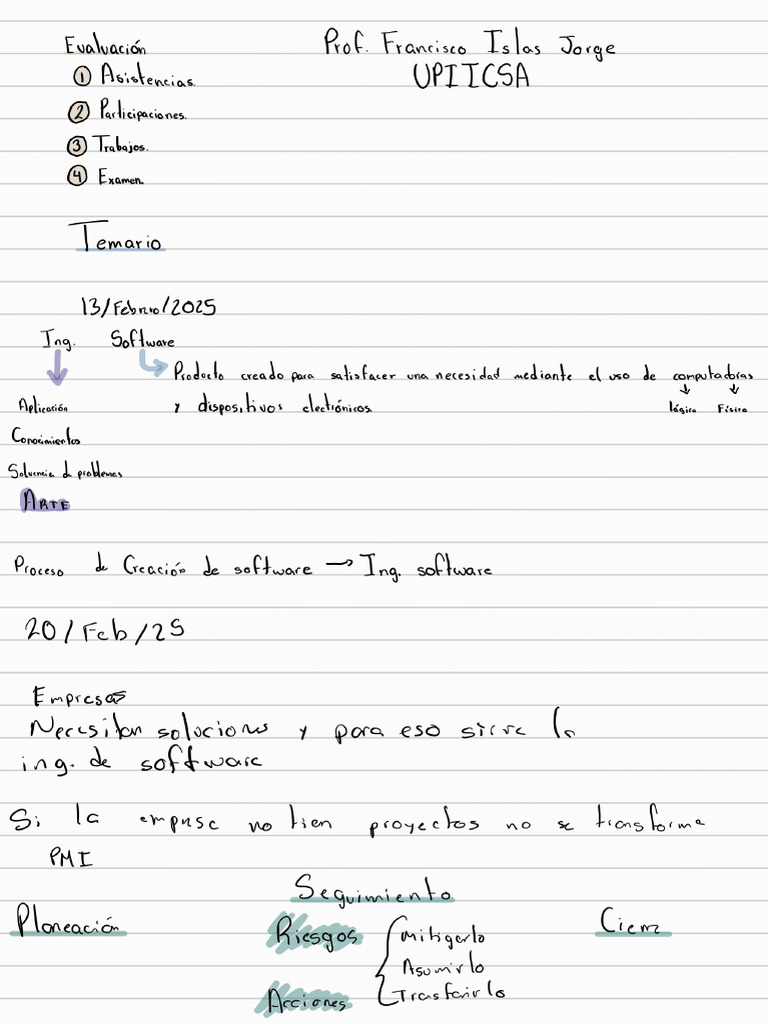 Evaluación
① Asistencias.
② Participaciones.
③ Trabajos.
④ Examen.
Prof. Francisco Islas Jorge
UPIICSA
Temario
13/Febrero/2025
Ing. Software
Producto creado para satisfacer una necesidad mediante el uso de computadoras
y dispositivos electrónicos.
lógica Física
Aplicación
Conocimientos
Solvencia de problemas
ARTE
Proceso de Creación de software → Ing. software
20/Feb/25
Empresas
Necesitan soluciones y para eso sirve la
ing. de software
Si la empresa no tien proyectos no se transforma
PMI
Planeación
Seguimiento
Riesgos
Mitigarlo
Asumirlo
Trasferirlo
Acciones
Cierre